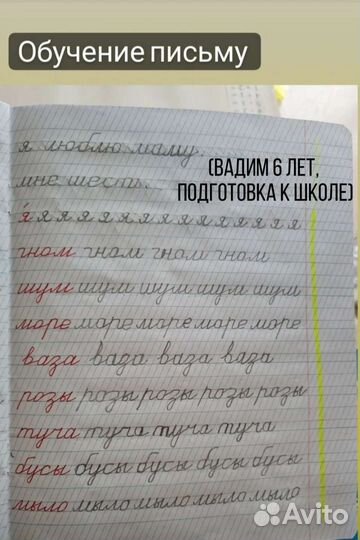 Обучение письму
я люблю маму.
(ВАДИМ 6 ЛЕТ,
ПОДГОТОВКА К ШКОЛЕ)
мне шесть.
я я я я я я я я я я я я я я
гном гном гном гном
шум шум шум шум шум
море море море море море
ваза вада ваза ваза
розы розы розы розы розы
туча туча туча туча
бусы бусы бусы бусы бусы
мыло мыло мыло мыло мыло
Avito